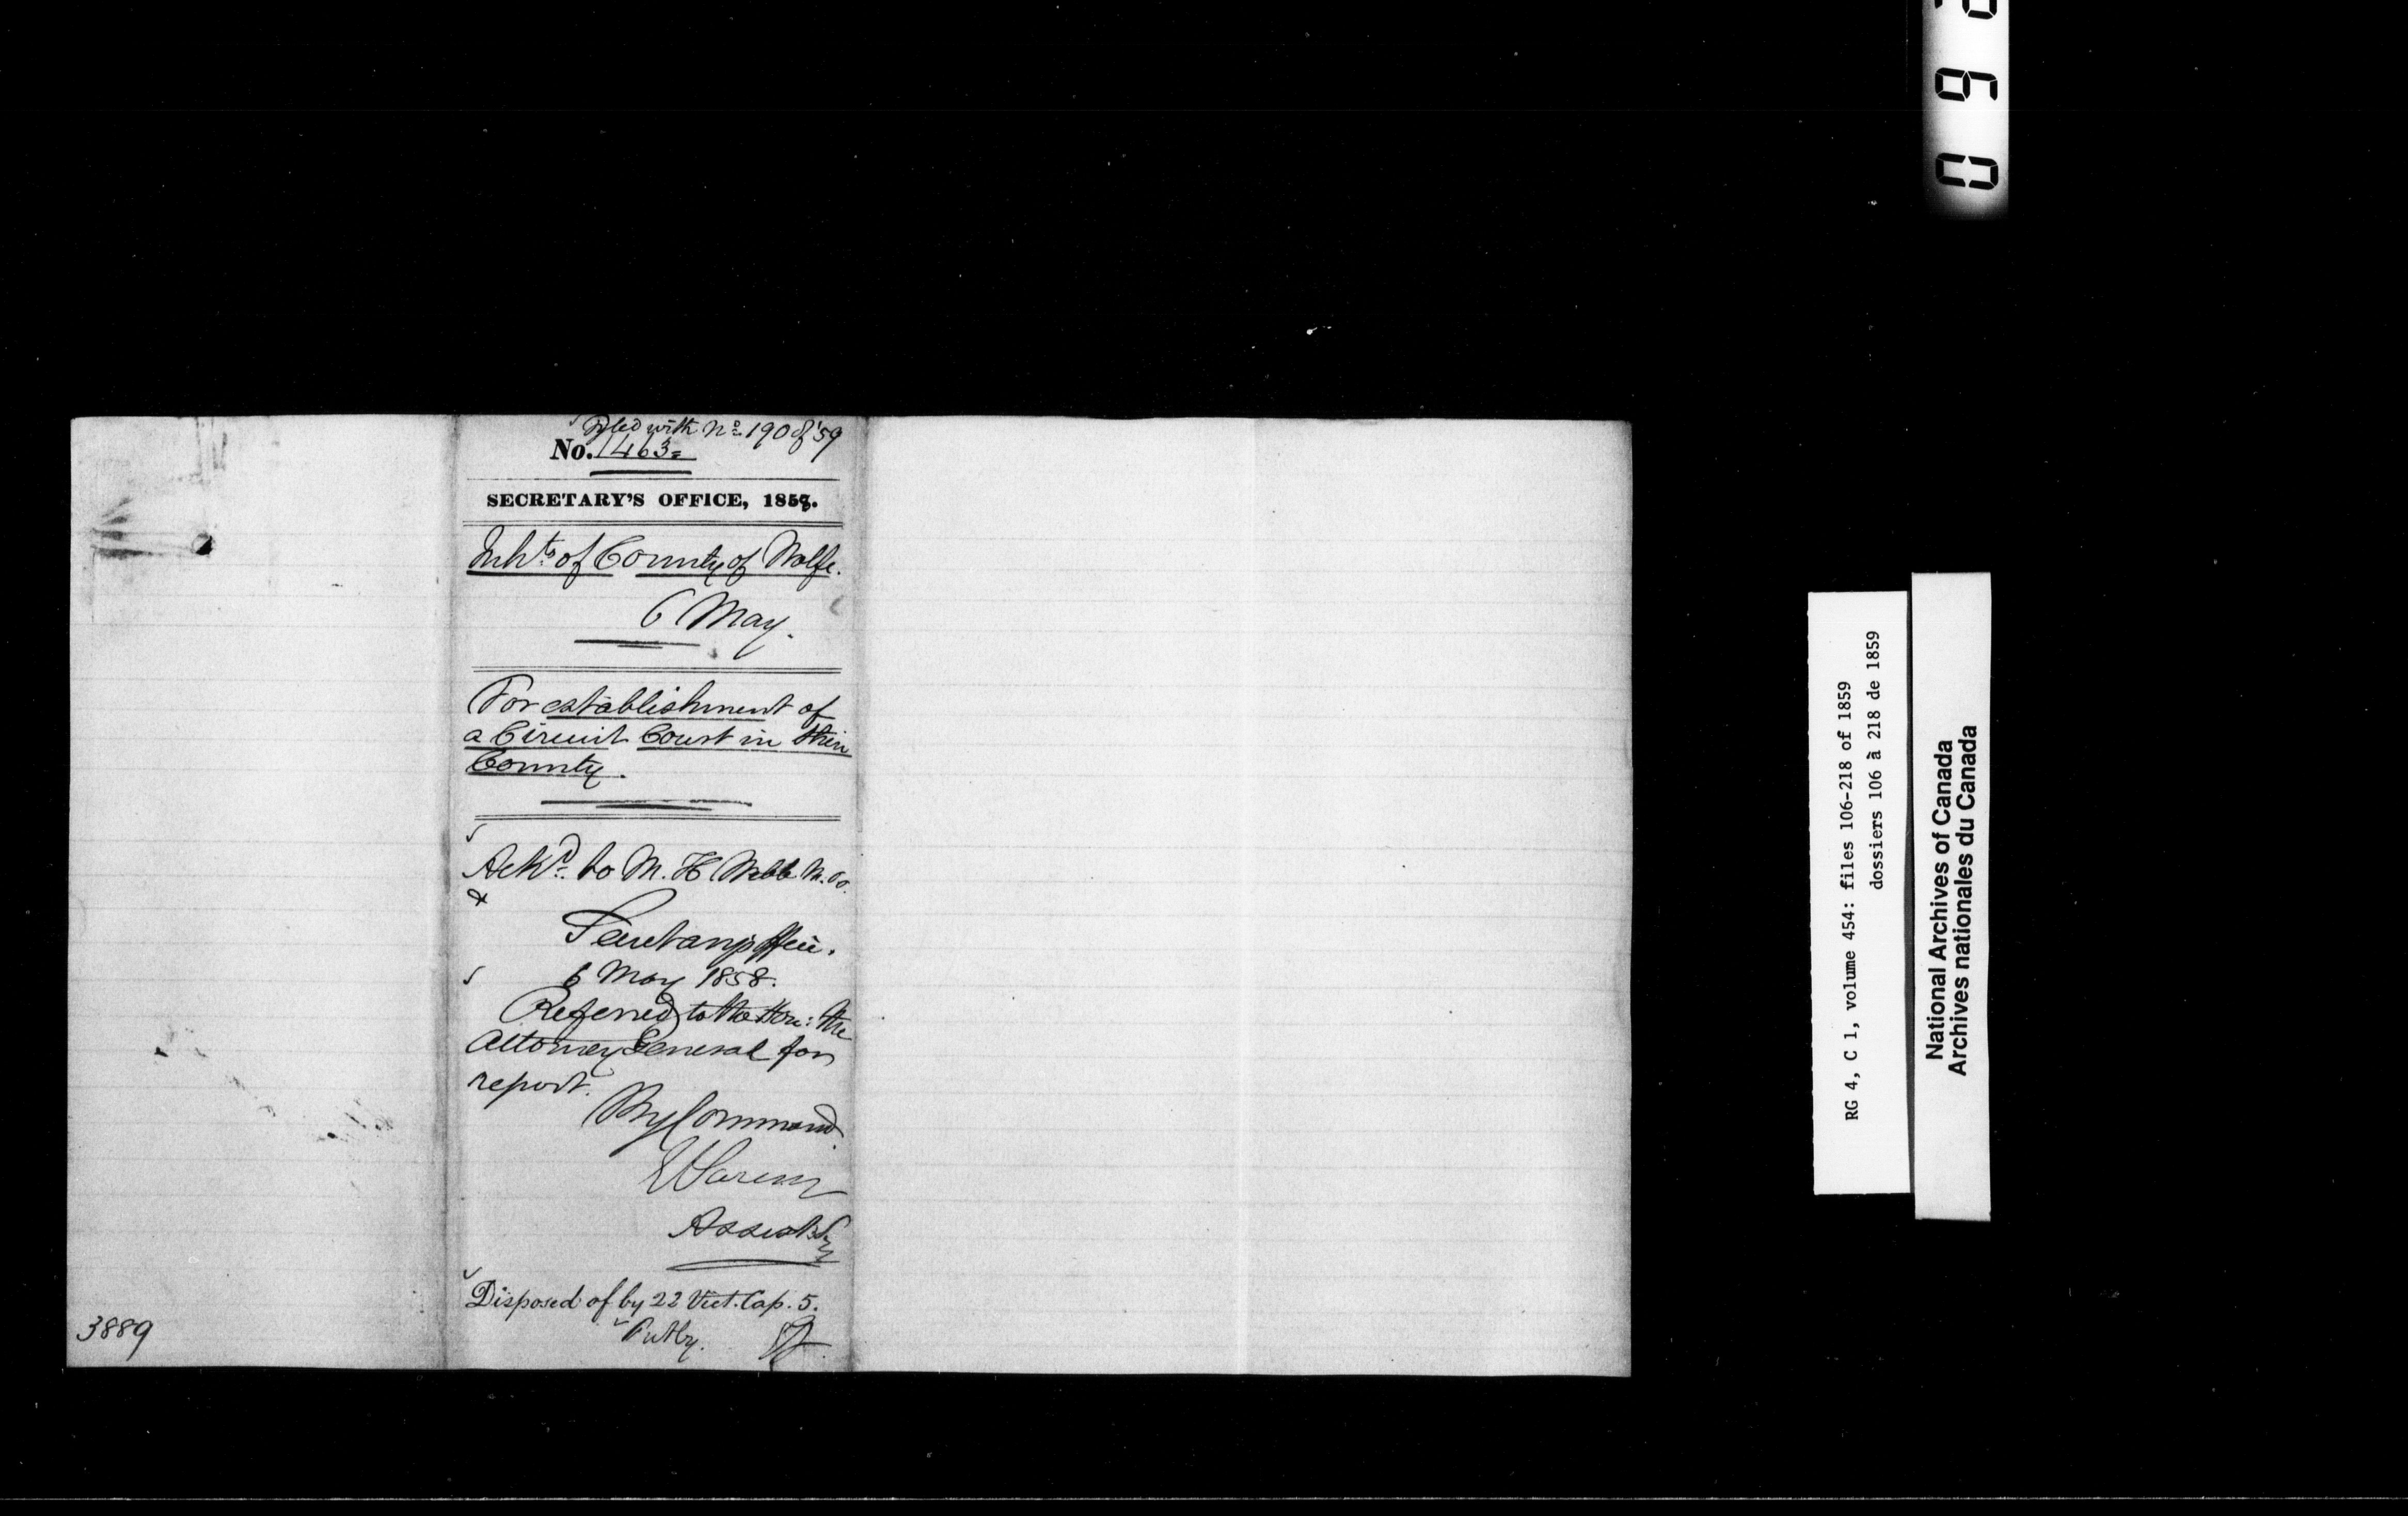 Filed with No 190 of '59
No. 1463=
SECRETARY'S OFFICE, 1858.
Inhts of County of Wolfe.
6 May.
For establishment of
a Circuit Court in their
County.
Ackd. to M. H
&
Secretary's Office.
6 May 1858.
Referred to the Hon: the
Attorney General for
report.
By Command
Assist Sy
Disposed of by 22 Vict. Cap. 5.
Put by.
3889
RG 4, C 1, volume 454: files 106-218 of 1859
dossiers 106 à 218 de 1859
National Archives of Canada
Archives nationales du Canada
0 9